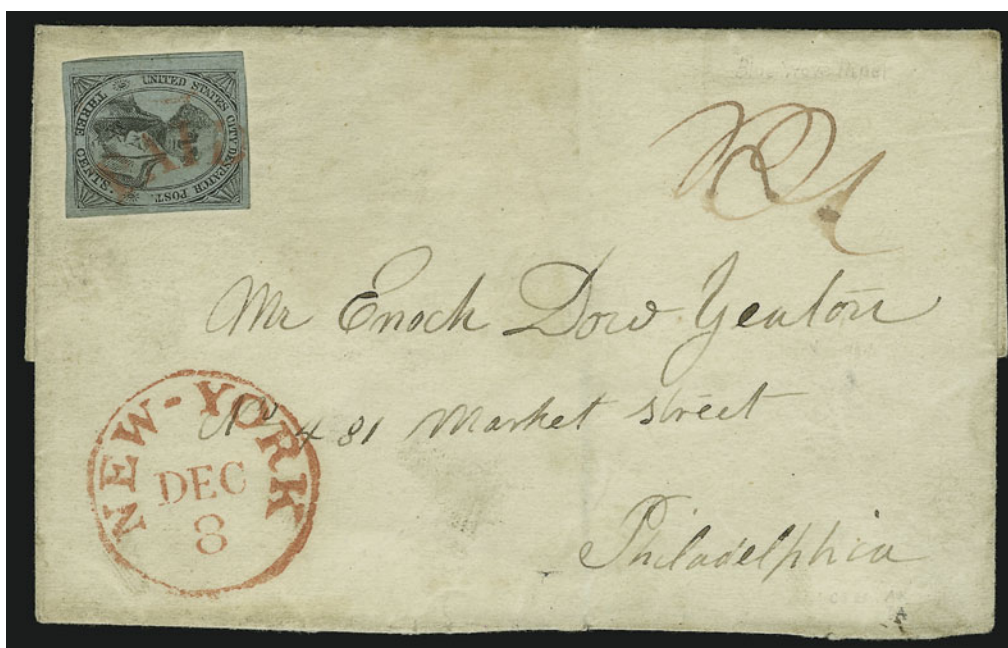 UNITED STATES CITY DESPATCH POST.
THREE CENTS.
Mr Enoch Dow Yeaton
No 481 Market Street
Philadelphia
NEW-YORK
DEC
8